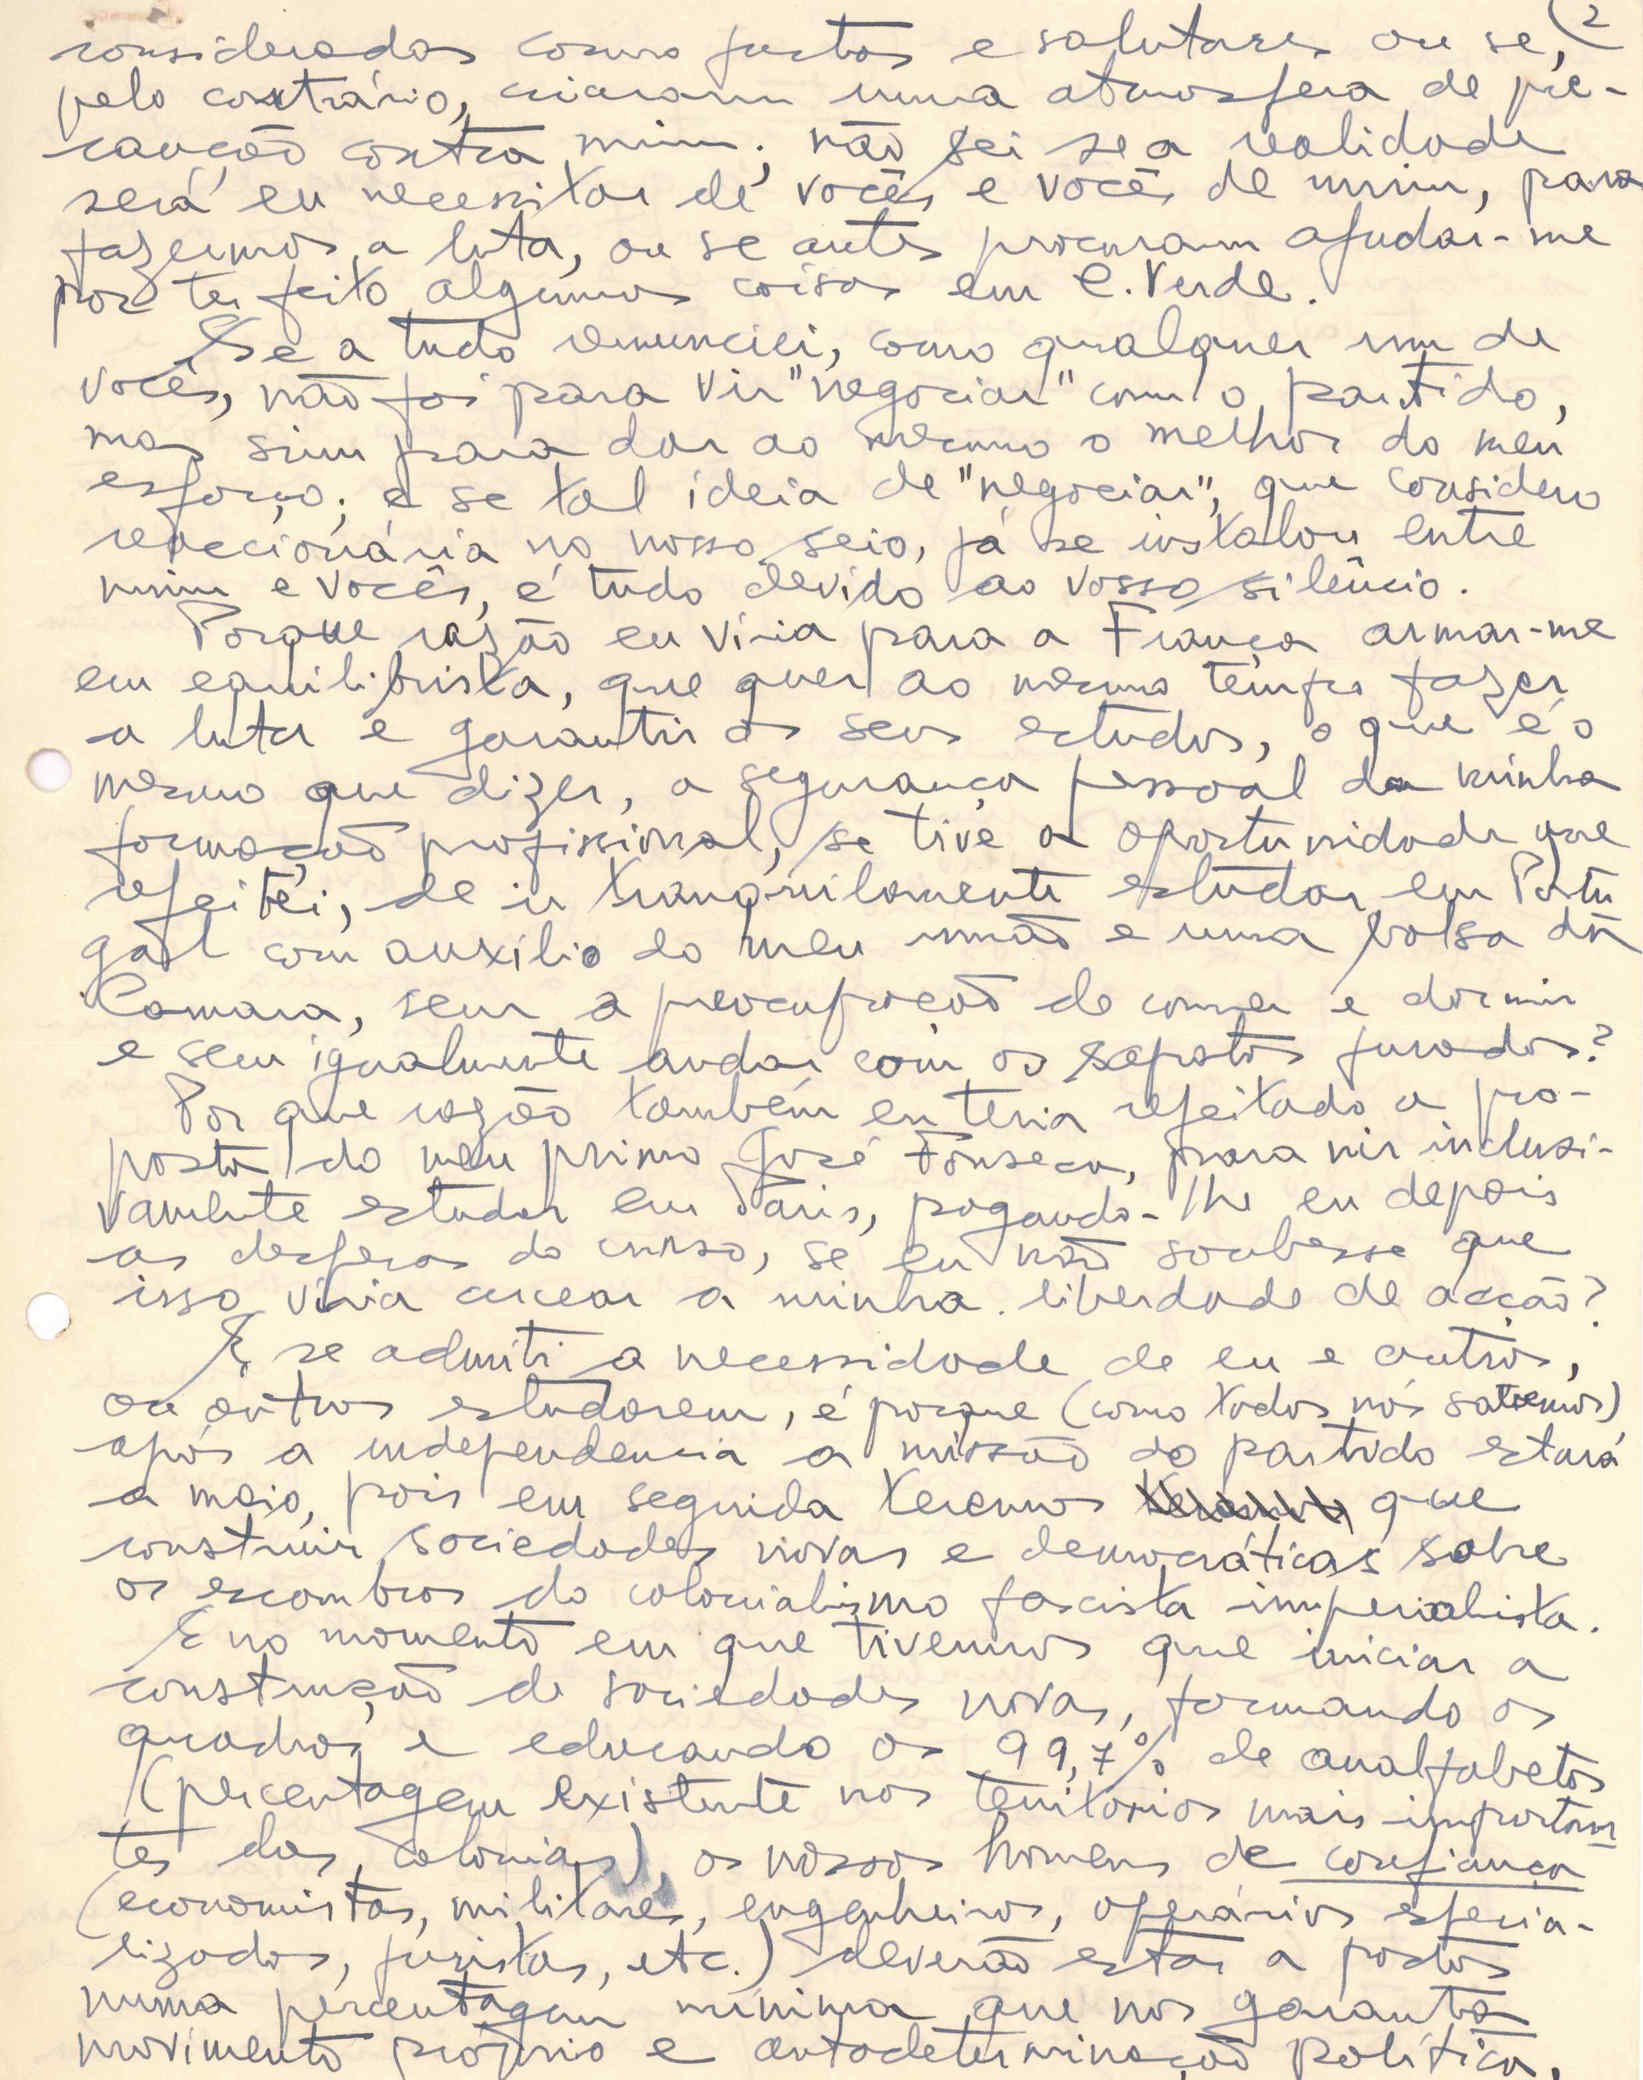 (2
considerados como justos e salutares ou se,
pelo contrário, criaram uma atmosfera de pre-
caução contra mim; não sei se a realidade
será eu necessitar de vocês e vocês de mim, para
fazermos a luta, ou se antes procuram ajudar-me
por ter feito algumas coisas em C. Verde.
Se a tudo renunciei, como qualquer um de
vocês, não foi para vir "negociar" com o partido,
mas sim para dar ao mesmo o melhor do meu
esforço; e se tal ideia de "negociar", que considero
reaccionária no nosso seio, já se instalou entre
mim e vocês, é tudo devido ao vosso silêncio.
Porque razão eu viria para a França armar-me
em equilibrista, que quer ao mesmo tempo fazer
a luta e garantir os seus estudos, o que é o
mesmo que dizer, a segurança pessoal da minha
formação profissional, se tive a oportunidade que
rejeitei, de ir tranquilamente estudar em Portu
gal com auxílio do meu irmão e uma bolsa da
Camara, sem a preocupação de comer e dormir
e sem igualmente andar com os sapatos furados?
Por que razão também eu teria rejeitado a pro-
posta do meu primo José Fonseca, para vir inclusi-
vamente estudar em Paris, pagando-lhe eu depois
as despesas do curso, se eu não soubesse que
isso viria cercear a minha liberdade de acção?
E se admiti a necessidade de eu e outros,
ou outros estudarem, é porque (como todos nós sabemos)
após a independencia a missão do partido estará
a meio, pois em seguida teremos que
construir sociedades novas e democráticas sobre
os escombros do colonialismo fascista imperialista.
E no momento em que tivermos que iniciar a
construção de sociedades novas, formando os
quadros e educando os 99,7% de analfabetos
(percentagem existente nos territórios mais importan
tes das colonias), os nossos homens de confiança
(economistas, militares, engenheiros, operários especia-
lizados, juristas, etc.) deverão estar a postos
numa percentagem mínima que nos garanta
movimento próprio e autodeterminação política,